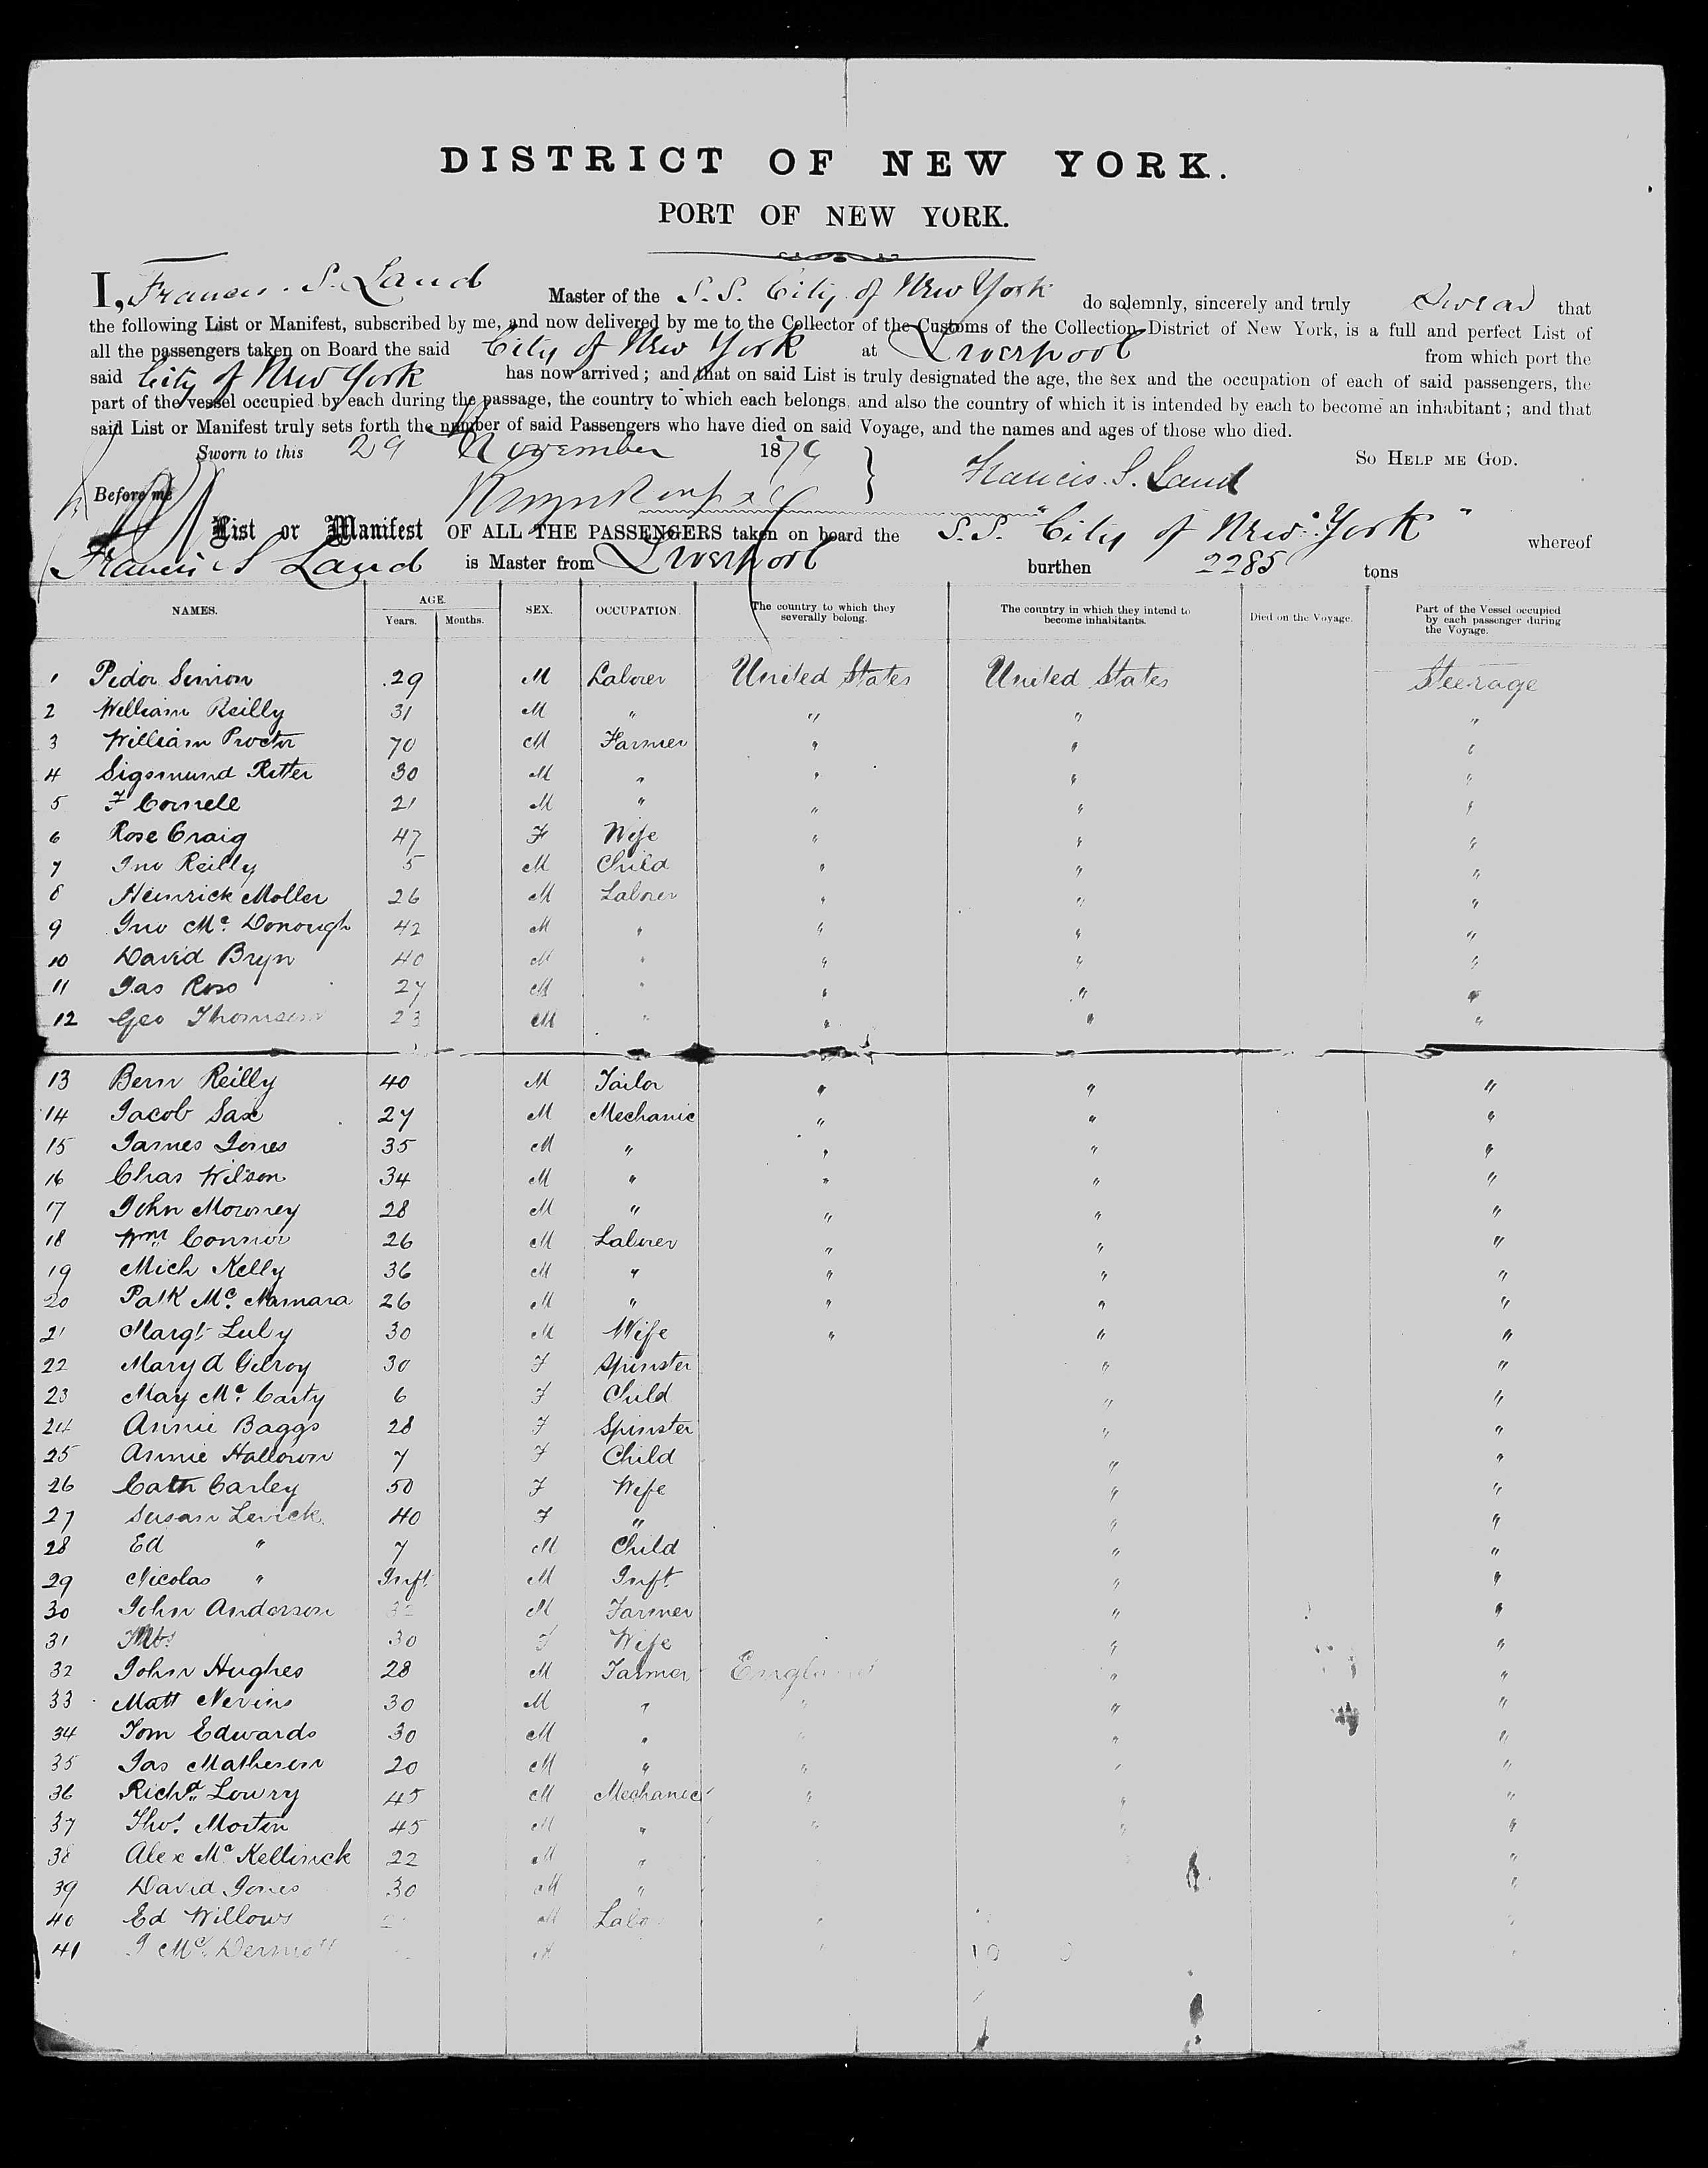 DISTRICT OF NEW YORK.
PORT OF NEW YORK.
I, Francis. S. Land Master of the S. S. City of New York do solemnly, sincerely and truly Swear that
the following List or Manifest, subscribed by me, and now delivered by me to the Collector of the Customs of the Collection District of New York, is a full and perfect List of
all the passengers taken on Board the said City of New York at Liverpool from which port the
said City of New York has now arrived; and that on said List is truly designated the age, the sex and the occupation of each of said passengers, the
part of the vessel occupied by each during the passage, the country to which each belongs, and also the country of which it is intended by each to become an inhabitant; and that
said List or Manifest truly sets forth the number of said Passengers who have died on said Voyage, and the names and ages of those who died.
Sworn to this 29 November 1879 So Help me God.
Before me Francis. S. Land
List or Manifest OF ALL THE PASSENGERS taken on board the S.S. "City of New York" whereof
Francis S Land is Master from Liverpool burthen 2285 tons
NAMES. AGE. Years. Months. SEX. OCCUPATION. The country to which they severally belong. The country in which they intend to become inhabitants. Died on the Voyage. Part of the Vessel occupied by each passenger during the Voyage.
1 Pedor Simion 29 M Laborer United States United States Steerage
2 William Reilly 31 M " " " "
3 William Proctor 70 M Farmer " " "
4 Sigsmund Ritter 30 M " " " "
5 F Cornell 21 M " " " "
6 Rose Craig 47 F Wife " " "
7 Jno Reilly 5 M Child " " "
8 Heinrick Moller 26 M Laborer " " "
9 Jno Mc Donough 42 M " " " "
10 David Bryn 40 M " " " "
11 Jas Ross 27 M " " " "
12 Geo Thomson 23 M " " " "
13 Bern Reilly 40 M Tailor " " "
14 Jacob Sax 27 M Mechanic " " "
15 James Jones 35 M " " " "
16 Chas Wilson 34 M " " " "
17 John Mowney 28 M " " " "
18 Wm Connor 26 M Laborer " " "
19 Mich Kelly 36 M " " " "
20 Patk Mc Namara 26 M " " " "
21 Margt Luby 30 M Wife " " "
22 Mary A Gilroy 30 F Spinster " "
23 May Mc Carty 6 F Child " "
24 Annie Baggs 28 F Spinster " "
25 Annie Halloran 7 F Child " "
26 Cath Carley 50 F Wife " "
27 Susan Levick 40 F " " "
28 Ed " 7 M Child " "
29 Nicolas " Inft M Inft " "
30 John Anderson 32 M Farmer " "
31 Mrs 30 F Wife " "
32 John Hughes 28 M Farmer England " "
33 Matt Nevins 30 M " " " "
34 Tom Edwards 30 M " " " "
35 Jas Matheson 20 M " " " "
36 Richd Lowry 45 M Mechanic " " "
37 Thos Mortin 45 M " " " "
38 Alex Mc Kellinck 22 M " "
39 David Jones 30 M " "
40 Ed Willows M Labo " "
41 J Mc Dermott M " "